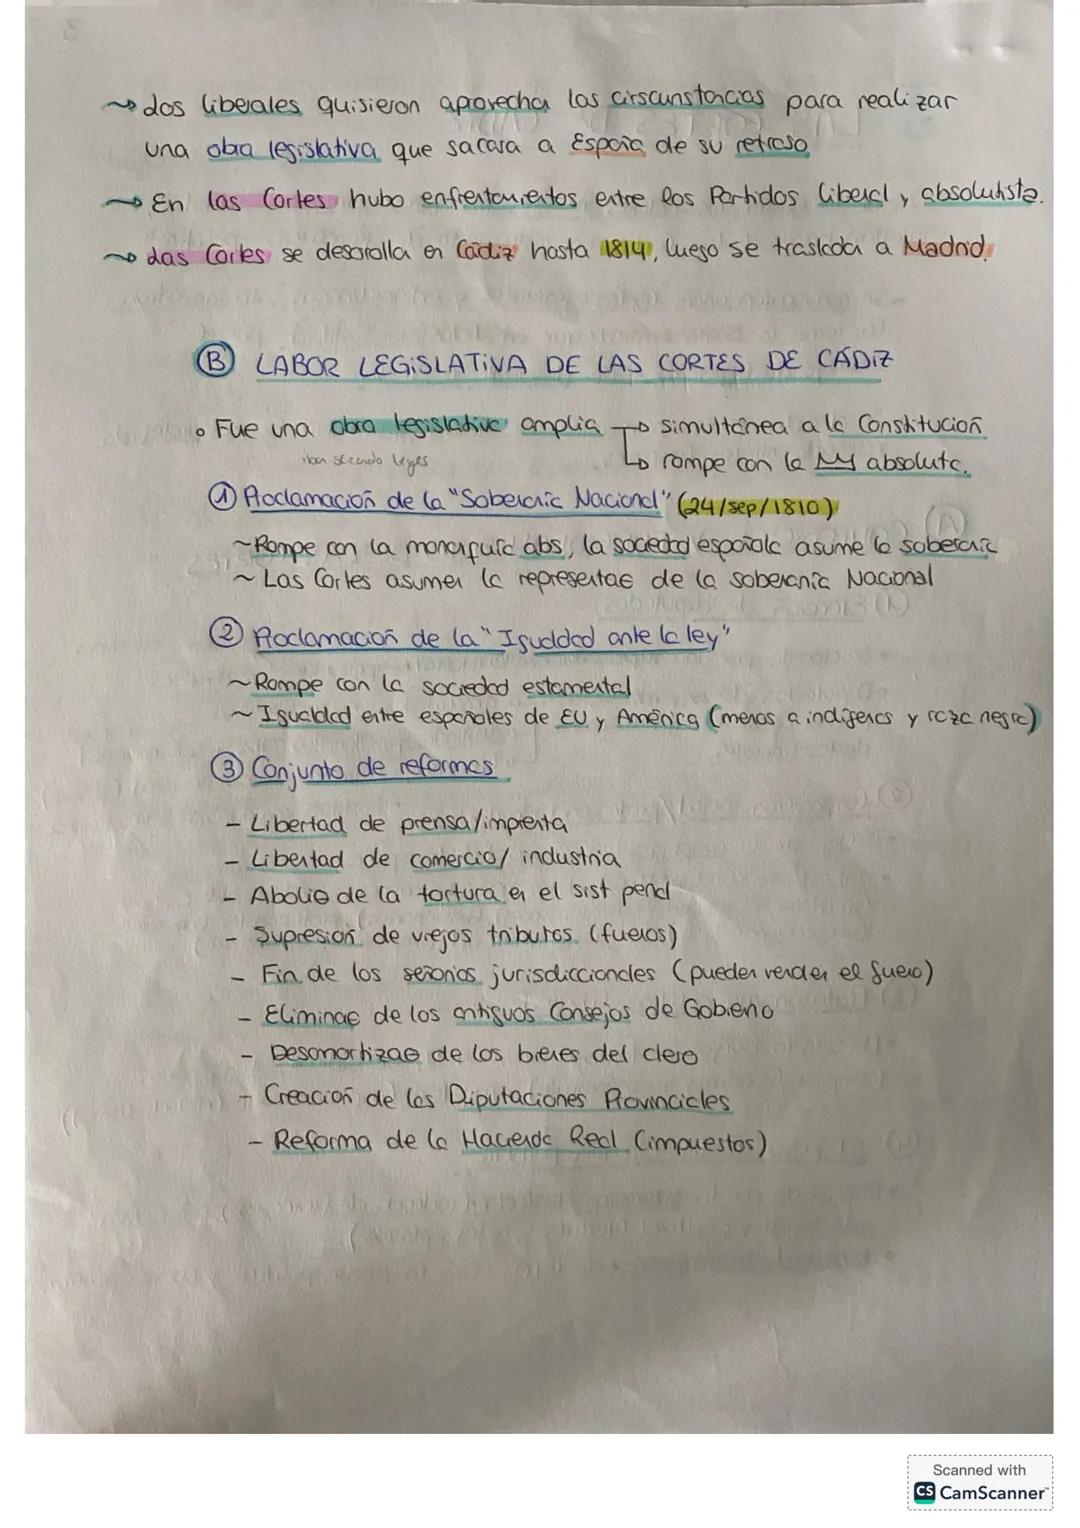 ~> Los liberales quisieron aprovechar las cirscunstancias para realizar
una obra legislativa que sacara a España de su retraso
~> En las Cortes hubo enfrentamientos entre los Partidos liberal y absolutista.
~> Las Cortes se desarolla en Cádiz hasta 1814, luego se traslada a Madrid.
(B) LABOR LEGISLATIVA DE LAS CORTES DE CÁDIZ
• Fue una obra legislativa amplia → simultánea a la Constitución
iban sacando leyes ↳ rompe con la MY absoluta.
① Proclamación de la "Soberanía Nacional" (24/sep/1810)
~Rompe con la monarquía abs, la sociedad española asume la soberanía
~ Las Cortes asumen la representae de la soberanía Nacional
② Proclamación de la "Igualdad ante la ley"
~Rompe con la sociedad estamental
~Igualdad entre españoles de EU y América (menos a indígenas y raza negra)
③ Conjunto de reformas
- Libertad de prensa/imprenta
- Libertad de comercio/industria
- Abolio de la tortura en el sist penal
- Supresión de viejos tributos (fueros)
- Fin de los señoríos jurisdiccionales (pueden vender el fuero)
- Eliminae de los antiguos Consejos de Gobierno
- Desamortizae de los bienes del clero
- Creación de las Diputaciones Provinciales
- Reforma de la Hacienda Real (impuestos)
Scanned with
CS CamScanner